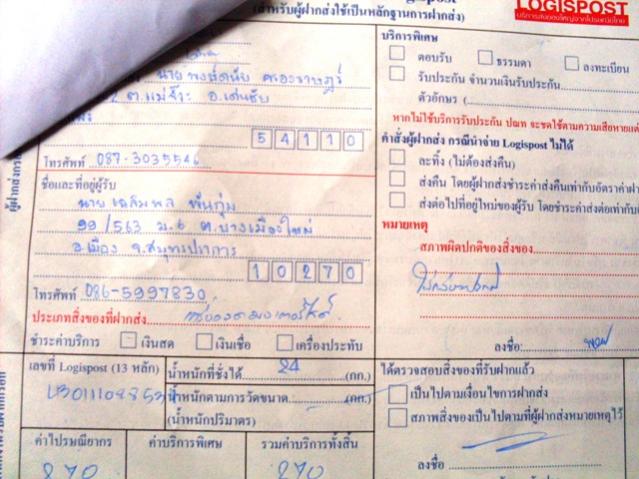 Logispost
LOGISPOST
(สำหรับผู้ฝากส่งใช้เป็นหลักฐานการฝากส่ง)
บริการพิเศษ
ตอบรับ ธรรมดา ลงทะเบียน
รับประกัน จำนวนเงินรับประกัน
ตัวอักษร (
หากไม่ใช้บริการรับประกัน ปณท จะชดใช้ตามความเสียหายแท้
คำสั่งผู้ฝากส่ง กรณีนำจ่าย Logispost ไม่ได้
ละทิ้ง (ไม่ต้องส่งคืน)
ส่งคืน โดยผู้ฝากส่งชำระค่าส่งคืนเท่ากับอัตราค่าฝาก
ส่งต่อไปที่อยู่ใหม่ของผู้รับ โดยชำระค่าส่งต่อเท่ากับ
หมายเหตุ
สภาพผิดปกติของสิ่งของ
ลงชื่อ:
นาย
ต.แม่จั๊วะ อ.เด่นชัย
54110
โทรศัพท์ 087-3035546
ชื่อและที่อยู่ผู้รับ
นาย เฉลิมพล พันกุ่ม
99/563 ม.6 ต.บางเมืองใหม่
อ.เมือง จ.สมุทรปราการ
10270
โทรศัพท์ 086-5997830
ประเภทสิ่งของที่ฝากส่ง
ชำระค่าบริการ เงินสด เงินเชื่อ เครื่องประทับ
เลขที่ Logispost (13 หลัก)
น้ำหนักที่ชั่งได้ 24 (กก.)
น้ำหนักตามการวัดขนาด (กก.)
(น้ำหนักปริมาตร)
ค่าไปรษณียากร ค่าบริการพิเศษ รวมค่าบริการทั้งสิ้น
270 270
ได้ตรวจสอบสิ่งของที่รับฝากแล้ว
เป็นไปตามเงื่อนไขการฝากส่ง
สภาพสิ่งของเป็นไปตามที่ผู้ฝากส่งหมายเหตุไว้
ลงชื่อ